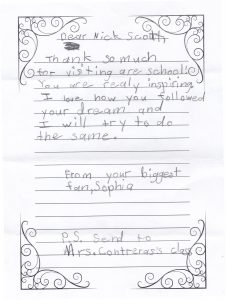 Dear Nick Scott,
Thank so much
for visiting are school!
You are realy inspiring
I love how you followed
your dream and
I will try to do
the same.
From your biggest
fan, Sophia
P.S. Send to
Mrs. Contreras's class